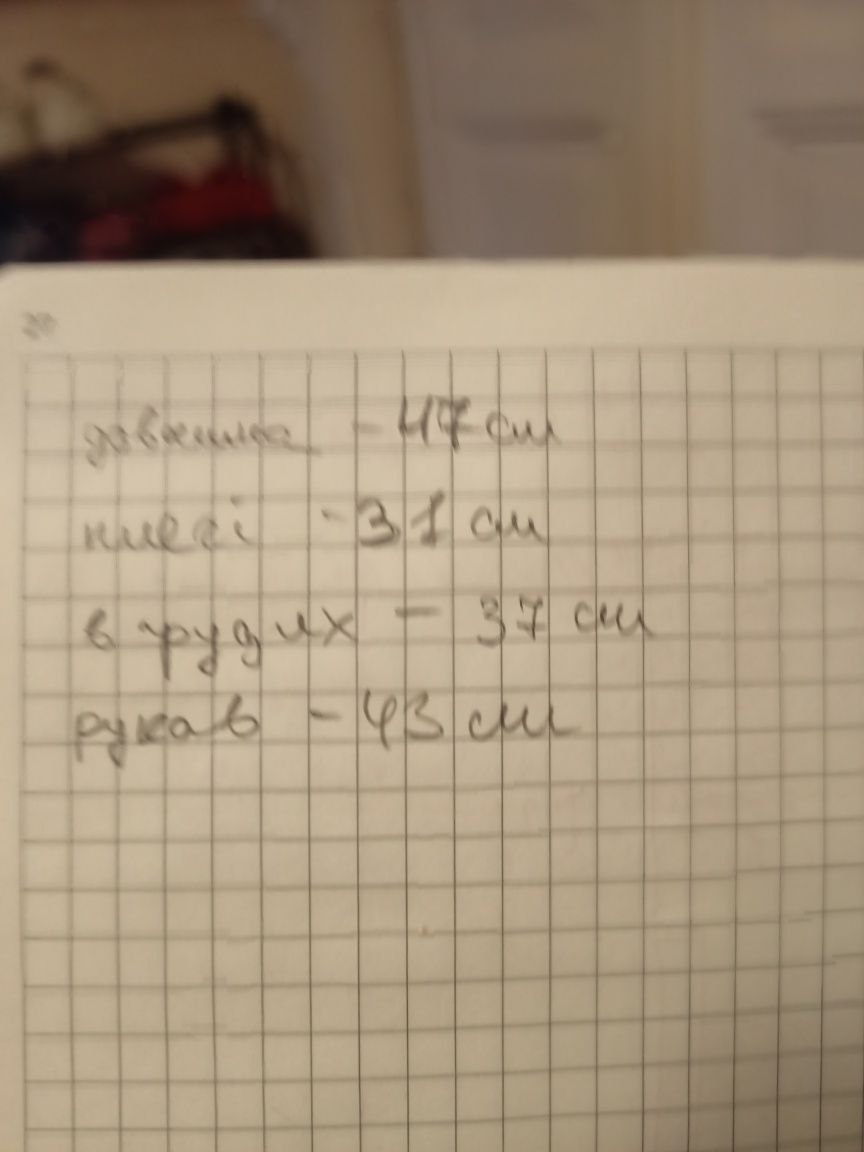 довжина - 47 см
плечі - 31 см
в грудях - 37 см
рукав - 43 см